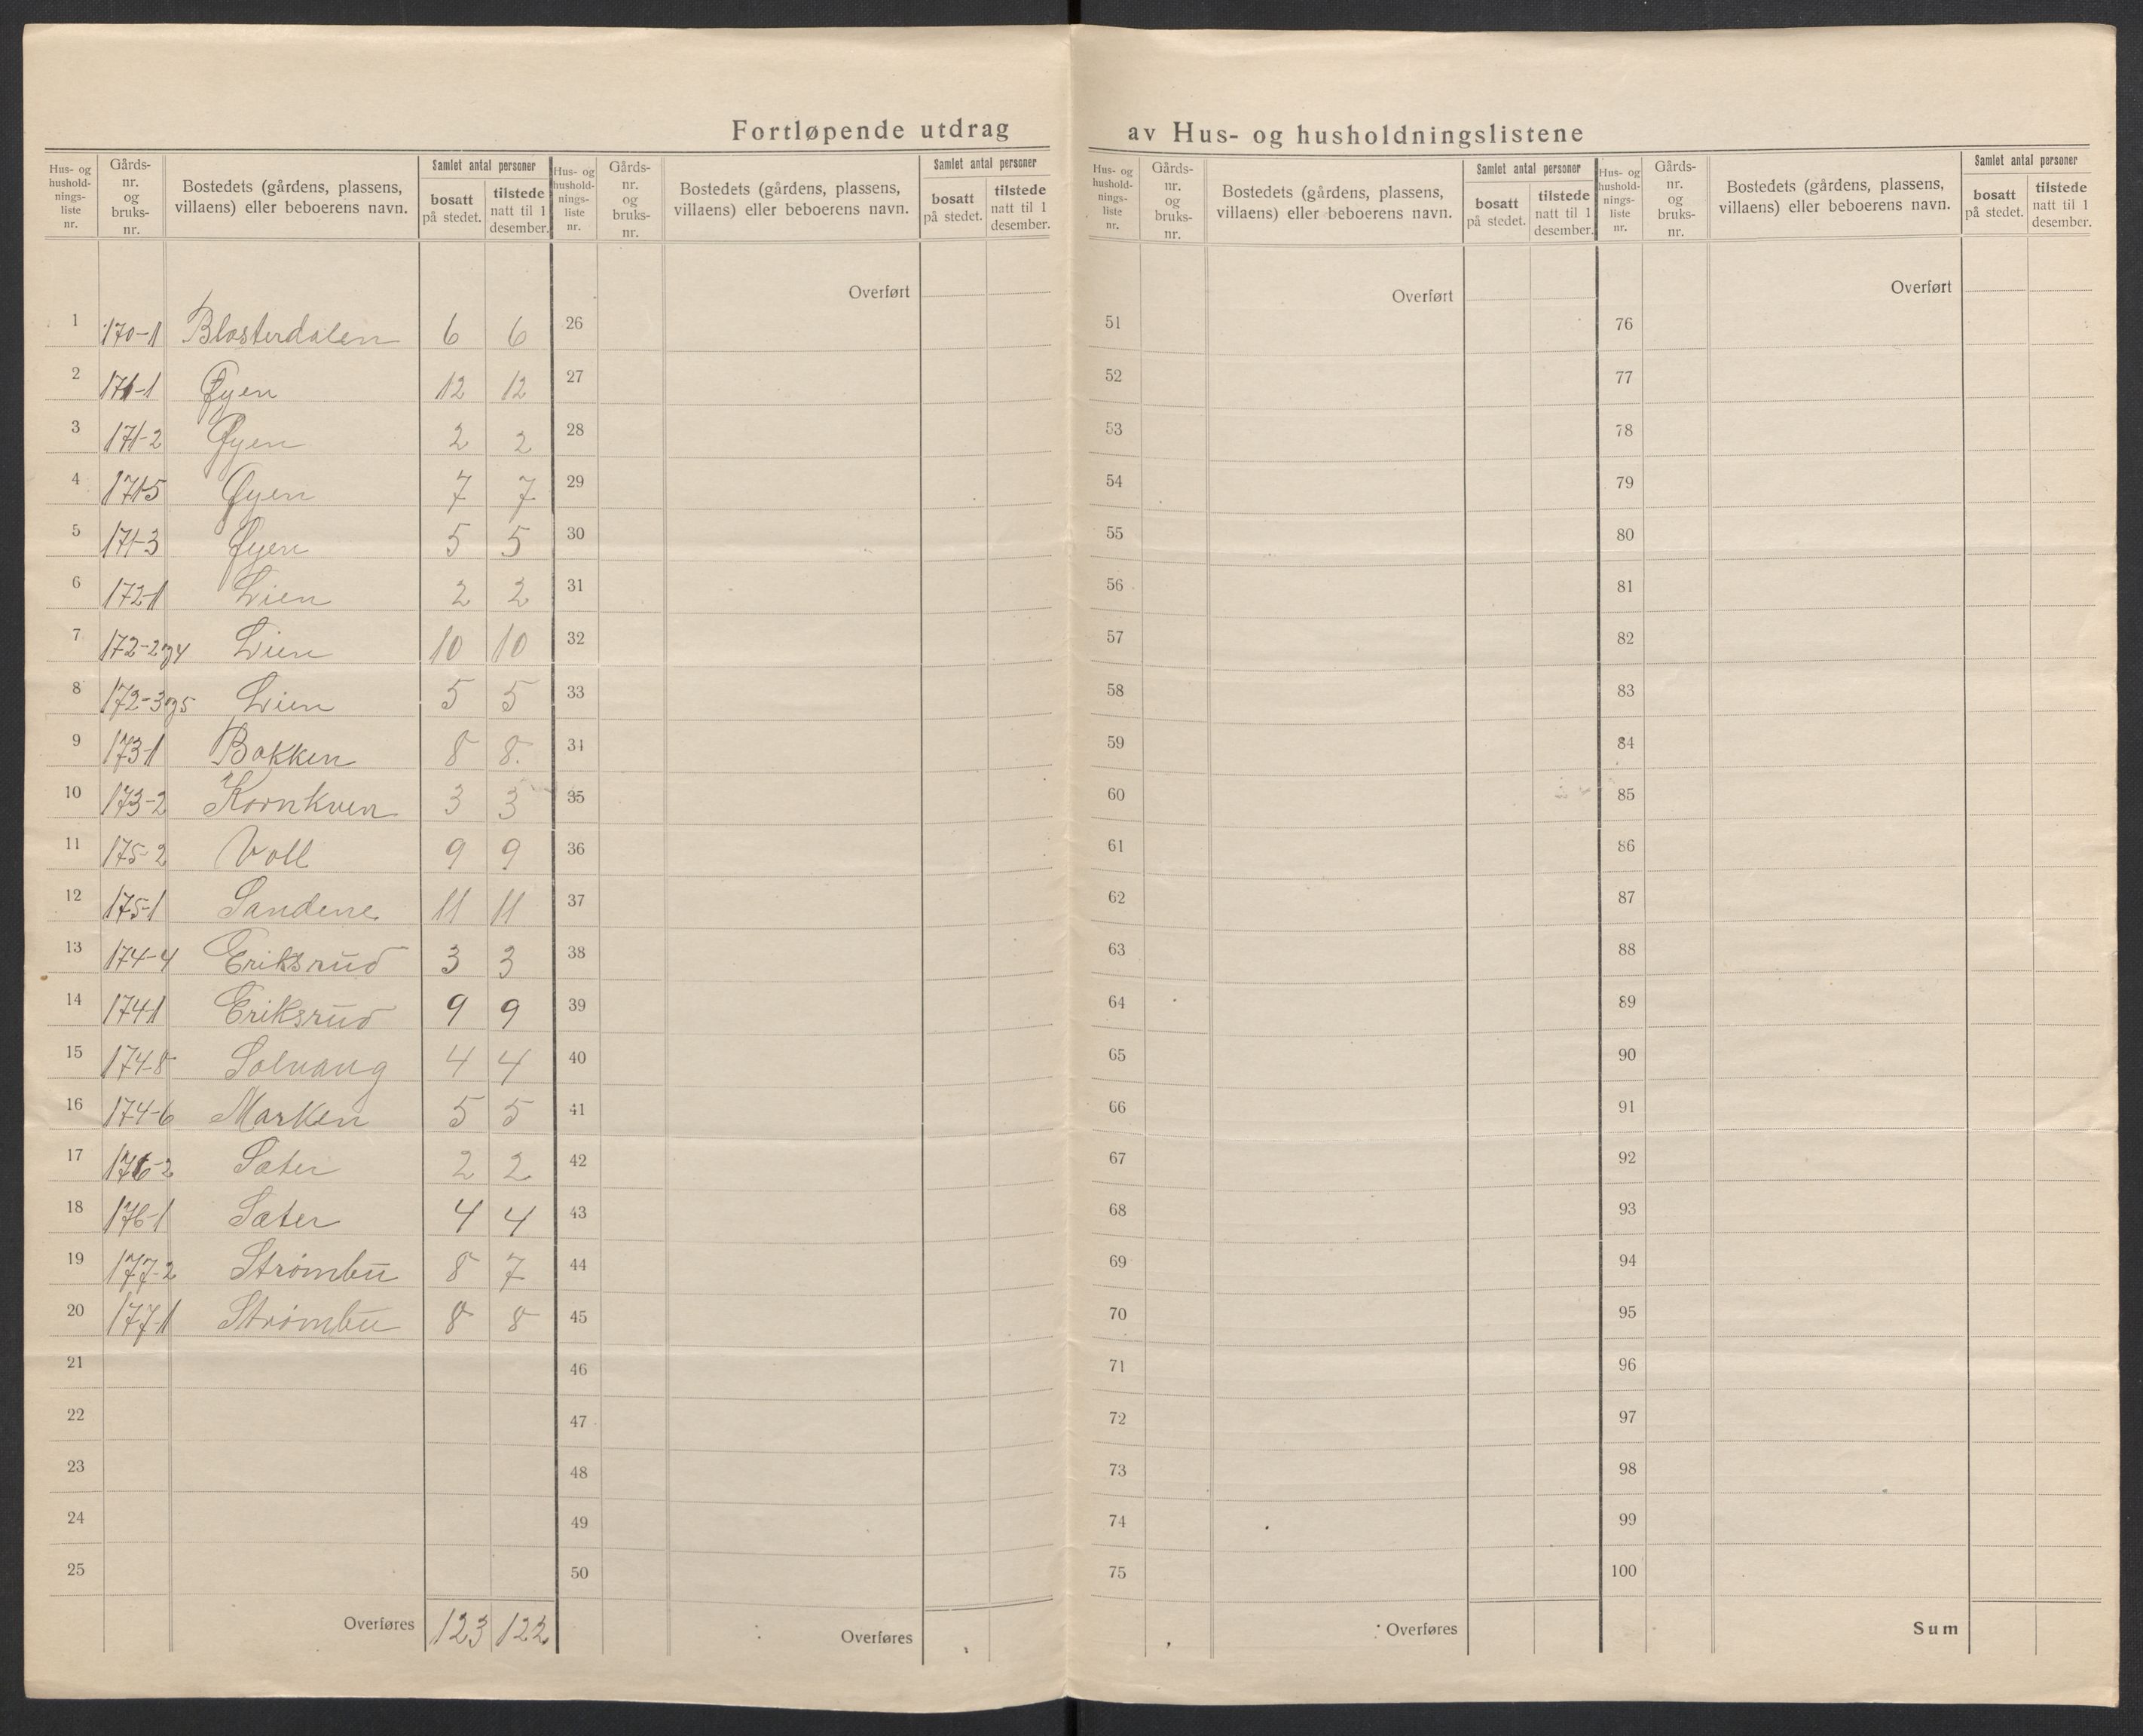 Fortløpende utdrag av Hus- og husholdningslistene
Hus- og hushold- nings- liste nr. | Gårds- nr. og bruks- nr. | Bostedets (gårdens, plassens, villaens) eller beboerens navn. | Samlet antal personer | bosatt på stedet. | tilstede natt til 1 desember.
Hus- og hushold- nings- liste nr. | Gårds- nr. og bruks- nr. | Bostedets (gårdens, plassens, villaens) eller beboerens navn. | Samlet antal personer | bosatt på stedet. | tilstede natt til 1 desember.
Hus- og hushold- nings- liste nr. | Gårds- nr. og bruks- nr. | Bostedets (gårdens, plassens, villaens) eller beboerens navn. | Samlet antal personer | bosatt på stedet. | tilstede natt til 1 desember.
Hus- og hushold- nings- liste nr. | Gårds- nr. og bruks- nr. | Bostedets (gårdens, plassens, villaens) eller beboerens navn. | Samlet antal personer | bosatt på stedet. | tilstede natt til 1 desember.
Overført Overført Overført
1 170-1 Blæsterdalen 6 6 26 51 76
2 171-1 Øyen 12 12 27 52 77
3 171-2 Øyen 2 2 28 53 78
4 171-5 Øyen 7 7 29 54 79
5 171-3 Øyen 5 5 30 55 80
6 172-1 Lien 2 2 31 56 81
7 172-2og4 Lien 10 10 32 57 82
8 172-3og5 Lien 5 5 33 58 83
9 173-1 Bakken 8 8 34 59 84
10 173-2 Kornkven 3 3 35 60 85
11 175-2 Voll 9 9 36 61 86
12 175-1 Sandene 11 11 37 62 87
13 174-4 Eriksrud 3 3 38 63 88
14 174-1 Eriksrud 9 9 39 64 89
15 174-8 Solvang 4 4 40 65 90
16 174-6 Marken 5 5 41 66 91
17 176-2 Sæter 2 2 42 67 92
18 176-1 Sæter 4 4 43 68 93
19 177-2 Strømbu 8 7 44 69 94
20 177-1 Strømbu 8 8 45 70 95
21 46 71 96
22 47 72 97
23 48 73 98
24 49 74 99
25 50 75 100
Overføres 123 122 Overføres Overføres Sum